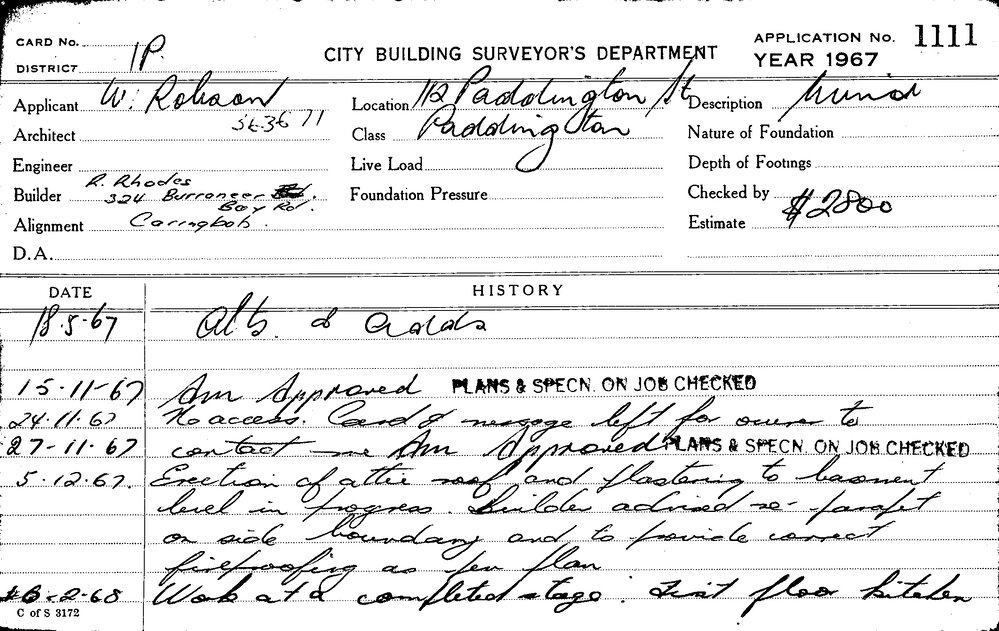 CARD No.
DISTRICT 1P.
CITY BUILDING SURVEYOR'S DEPARTMENT
APPLICATION No. 1111
YEAR 1967
Applicant W. Robson
36 36 71
Location 112 Paddington St
Description Minor
Architect
Class Paddington
Nature of Foundation
Engineer
Live Load
Depth of Footings
Builder R. Rhodes
324 Burraneer
Bay Rd.
Foundation Pressure
Checked by
Alignment Caringbah.
Estimate $2800
D.A.
DATE HISTORY
18.5.67 Alts. & Adds
15-11-67 Am Approved PLANS & SPECN. ON JOB CHECKED
24.11.67 No access. Card & message left for owner to
27-11-67 contact me Am Approved PLANS & SPECN. ON JOB CHECKED
5.12.67. Erection of attic roof and plastering to basement
level in progress. Builder advised re- parapet
on side boundary and to provide correct
fireproofing as per plan
6-2-68 Work at a completed stage. First floor kitchen
C of S 3172